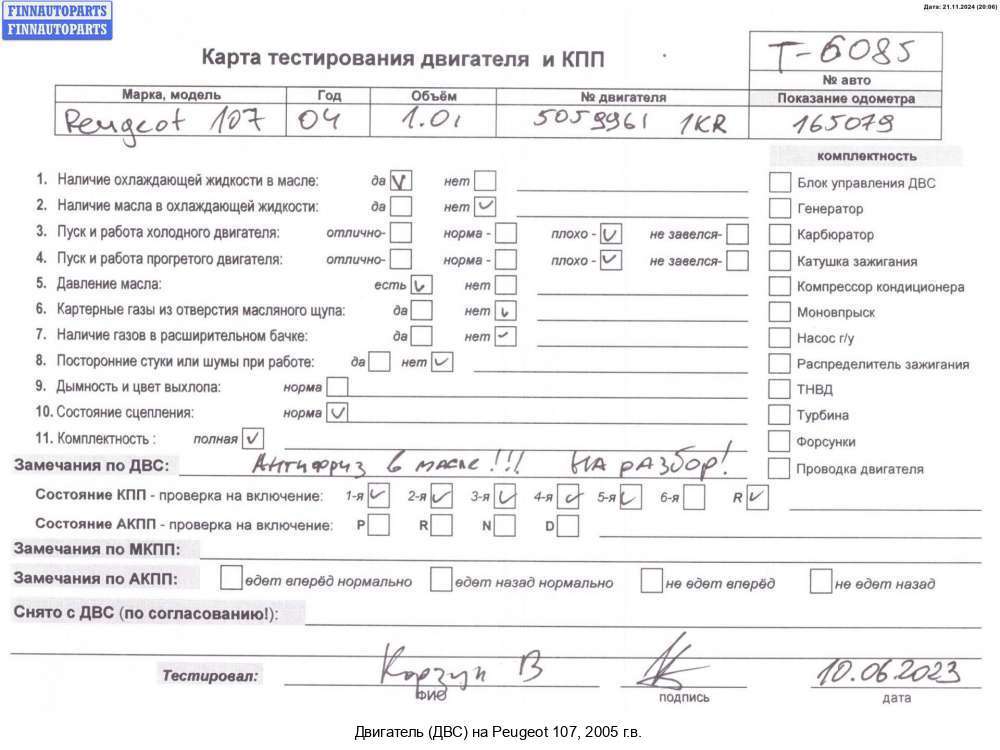 FINNAUTOPARTS
FINNAUTOPARTS
Дата: 21.11.2024 (20:06)
Карта тестирования двигателя и КПП
T-6085
№ авто
Марка, модель Год Объём № двигателя Показание одометра
Peugeot 107 04 1.0i 5059961 1KR 165079
комплектность
1. Наличие охлаждающей жидкости в масле: да нет
Блок управления ДВС
2. Наличие масла в охлаждающей жидкости: да нет
Генератор
3. Пуск и работа холодного двигателя: отлично- норма - плохо - не завелся-
Карбюратор
4. Пуск и работа прогретого двигателя: отлично- норма - плохо - не завелся-
Катушка зажигания
5. Давление масла: есть нет
Компрессор кондиционера
6. Картерные газы из отверстия масляного щупа: да нет
Моновпрыск
7. Наличие газов в расширительном бачке: да нет
Насос г/у
8. Посторонние стуки или шумы при работе: да нет
Распределитель зажигания
9. Дымность и цвет выхлопа: норма
ТНВД
10. Состояние сцепления: норма
Турбина
11. Комплектность : полная
Форсунки
Замечания по ДВС: Антифриз в масле!!! На разбор!
Проводка двигателя
Состояние КПП - проверка на включение: 1-я 2-я 3-я 4-я 5-я 6-я R
Состояние АКПП - проверка на включение: P R N D
Замечания по МКПП:
Замечания по АКПП: едет вперёд нормально едет назад нормально не едет вперёд не едет назад
Снято с ДВС (по согласованию!):
Тестировал: Корзун В 10.06.2023
ФИО подпись дата
Двигатель (ДВС) на Peugeot 107, 2005 г.в.